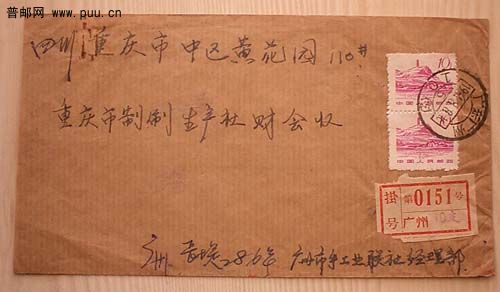 普邮网
www.puu.cn
四川重庆市中区黄花园110#
重庆市制刷生产社财会收
10
中国人民邮政
中国人民邮政
广州
挂号
第0151号
广州
广州 286号 广州市手工业联社经理部